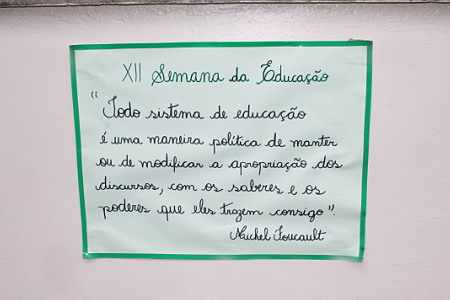 XII Semana da Educação
"Todo sistema de educação
é uma maneira política de manter
ou de modificar a apropriação dos
discursos, com os saberes e os
poderes que eles trazem consigo".
Michel Foucault